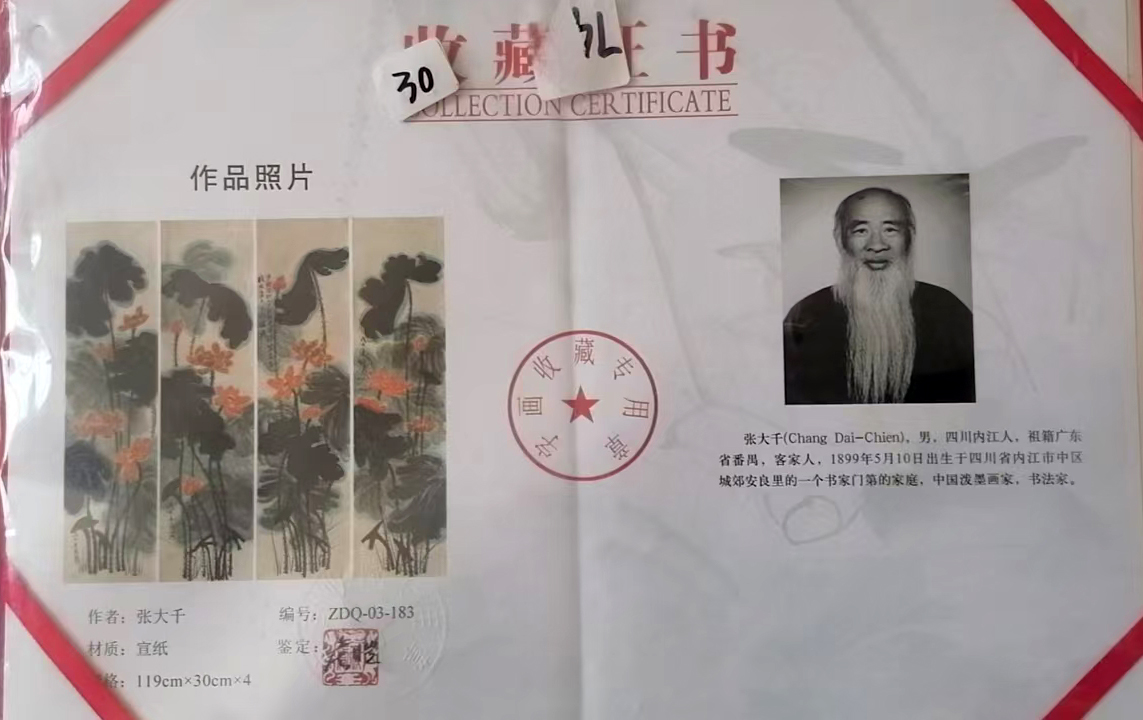 收藏证书
30
COLLECTION CERTIFICATE
作品照片
字画收藏专用章
张大千(Chang Dai-Chien)，男，四川内江人，祖籍广东
省番禺，客家人，1899年5月10日出生于四川省内江市中区
城郊安良里的一个书家门第的家庭，中国泼墨画家，书法家。
作者：张大千
编号：ZDQ-03-183
材质：宣纸
鉴定：
格：119cm×30cm×4